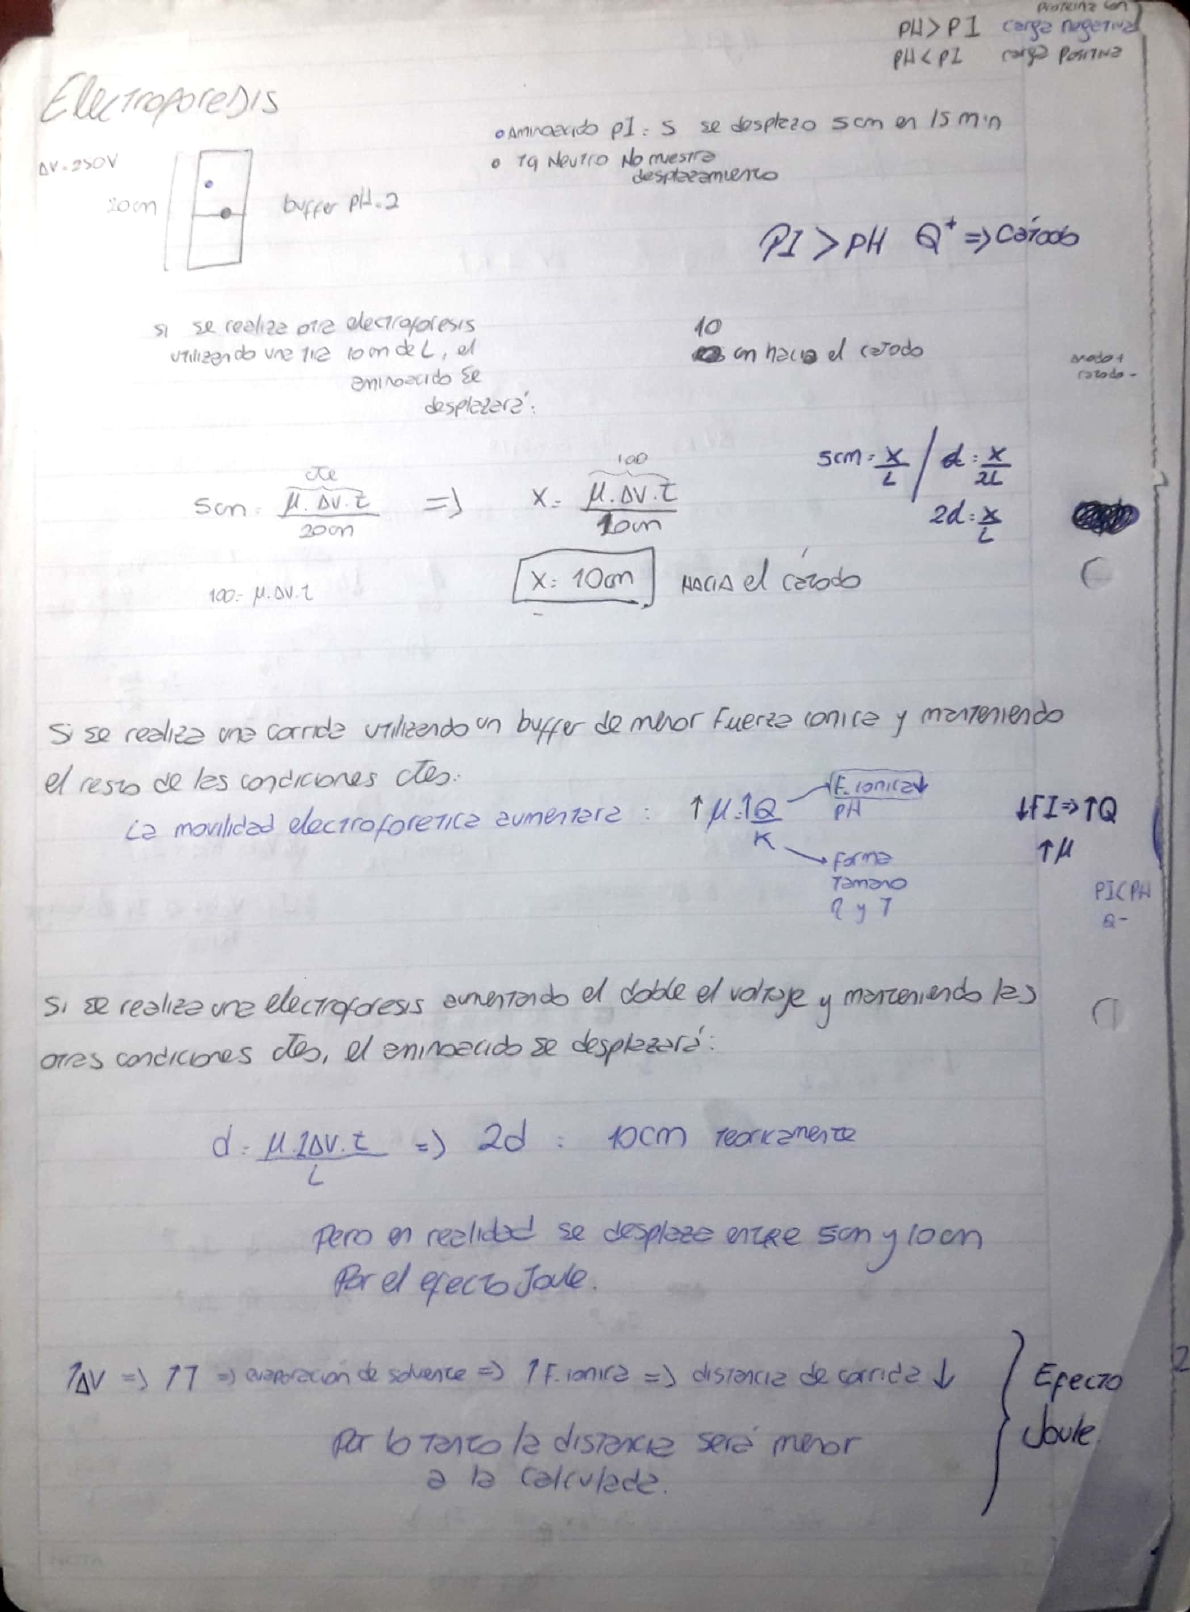 Proteina con
PH > PI carga negativa
PH < PI carga Positiva
Electroforesis
• Aminoacido pI = 5 se desplazo 5cm en 15 min
• Tq Neutro No muestra
desplazamiento
ΔV = 250V
20cm
buffer pH = 2
PI > pH Q⁺ => Cátodo
si se realiza otra electroforesis
utilizando una tira 10cm de L, el
aminoacido se
desplazará:
10
cm hacia el catodo
anodo +
catodo -
cte
5cm = μ.ΔV.t / 20cm => X = μ.ΔV.t / 10cm
100
5cm = X/L / d = X/2L
2d = X/L
100 = μ.ΔV.t
X = 10cm HACIA el cátodo
Si se realiza una corrida utilizando un buffer de menor Fuerza ionica y manteniendo
el resto de las condiciones ctes.
La movilidad electroforetica aumentara : ↑ μ = ↑Q / K
F. ionica ↓
PH
Forma
Tamano
η y T
↓FI => ↑Q
↑μ
PI < PH
Q-
Si se realiza una electroforesis aumentando el doble el voltaje y manteniendo las
otras condiciones ctes, el aminoacido se desplazará:
d = μ.2ΔV.t / L => 2d = 10cm teoricamente
Pero en realidad se desplaza entre 5cm y 10cm
Por el efecto Joule.
↑ΔV => ↑T => evaporación de solvente => ↑F. ionica => distancia de corrida ↓
Por lo tanto la distancia será menor
a la calculada.
Efecto
Joule.
2
NOTA